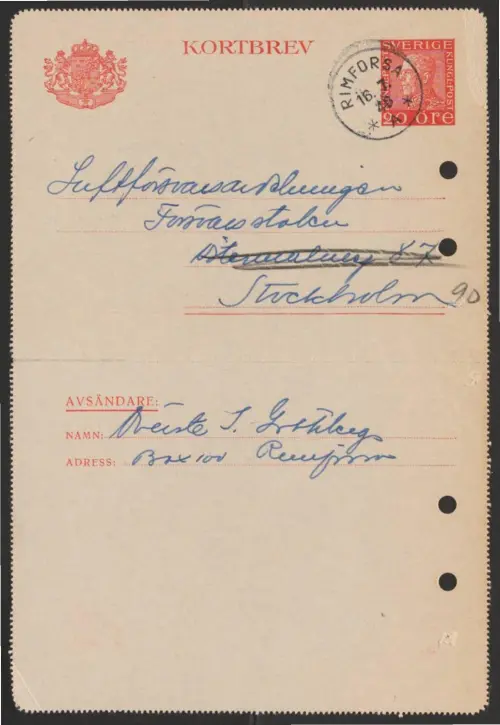 KORTBREV
SVERIGE
KUNGL. POST
20 ÖRE
RIMFORSA
16. 7.
Luftförsvarsavdelningen
Försvarsstaben
87
Stockholm 90
AVSÄNDARE:
NAMN: S.
ADRESS: Box 100 Rimforsa